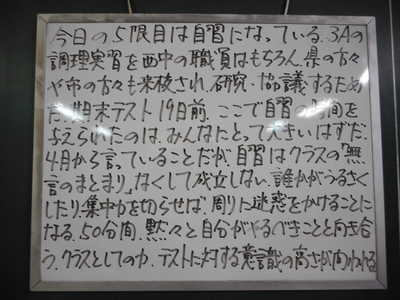 今日の5限目は自習になっている。3Aの
調理実習を西中の職員はもちろん、県の方々
や市の方々も来校され、研究・協議するため
だ。期末テスト19日前、ここで自習の時間を
与えられたのは、みんなにとって大きいはずだ。
4月から言っていることだが、自習はクラスの「無
言のまとまり」なくして成立しない。誰かがうるさく
したり、集中力を切らせば、周りに迷惑をかけることに
なる。50分間、黙々と自分がやるべきことと向き合
う。クラスとしての力、テストに対する意識の高さが問われる